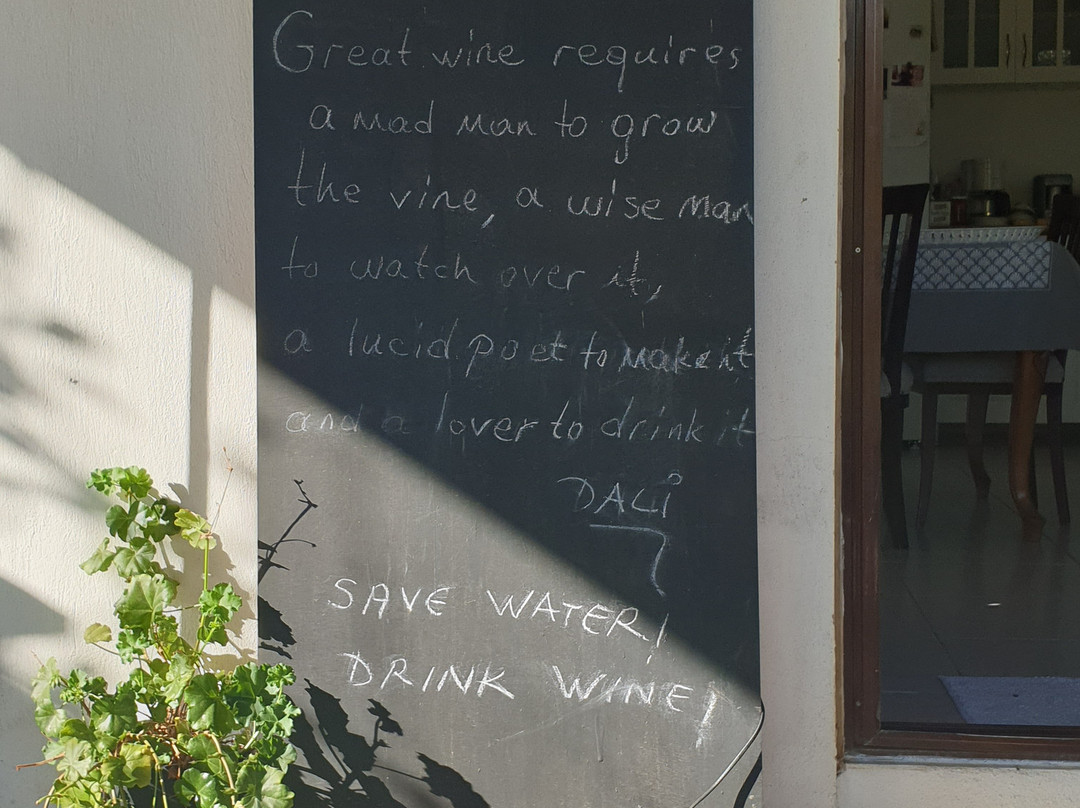 Great wine requires
a mad man to grow
the vine, a wise man
to watch over it,
a lucid poet to make it
and a lover to drink it
DALI
SAVE WATER!
DRINK WINE!